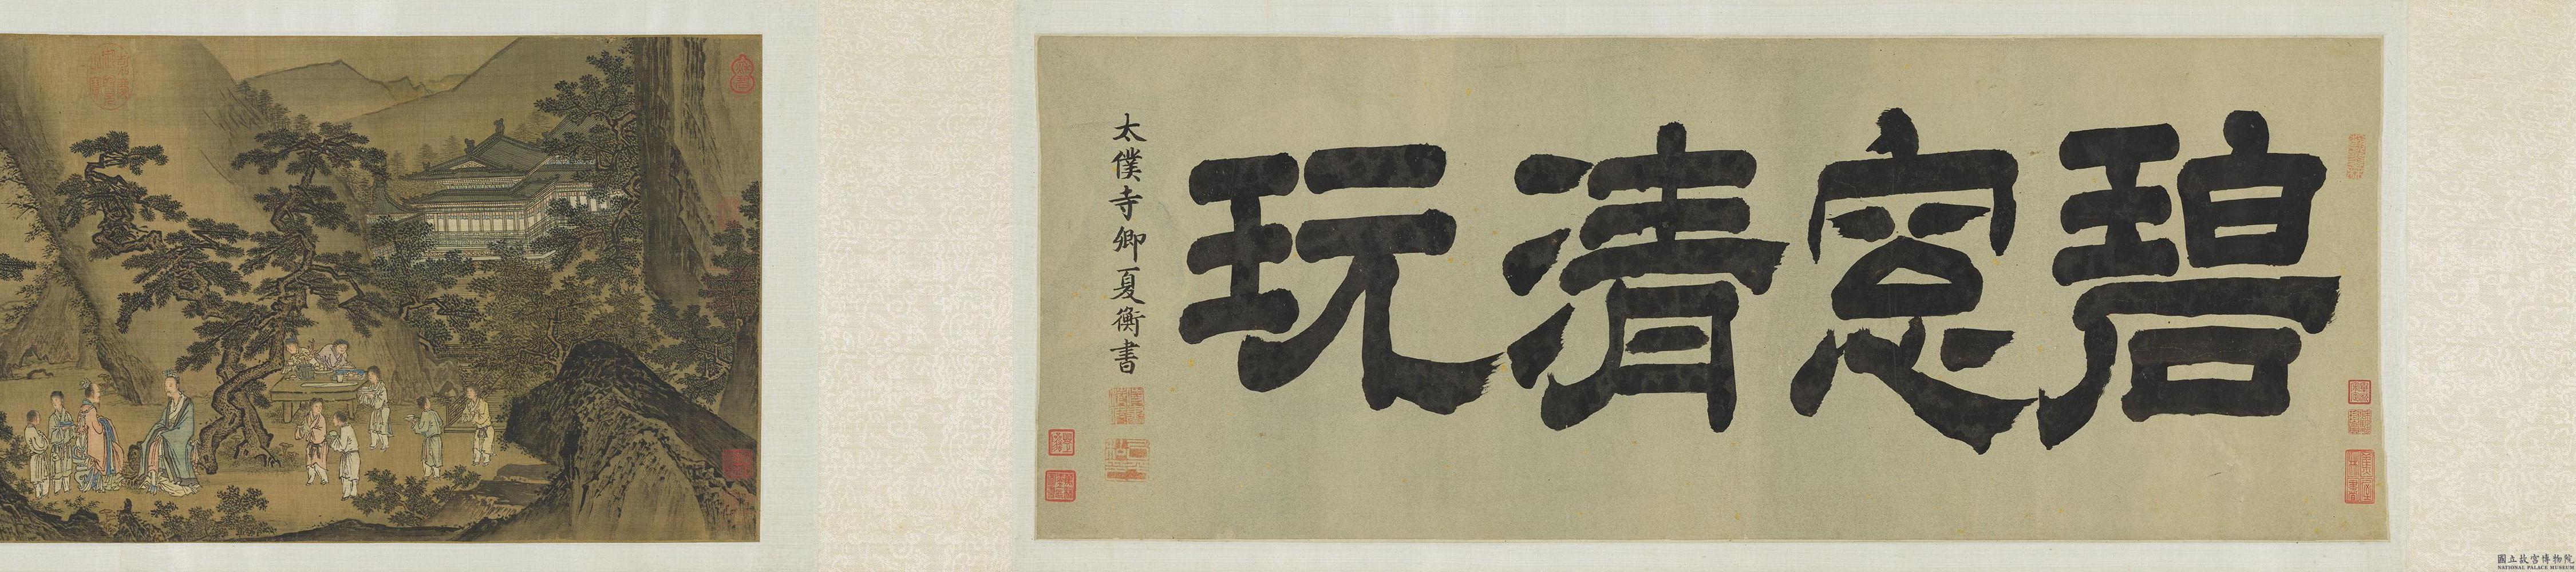 碧窓清玩
太僕寺卿夏衡書
國立故宮博物院
NATIONAL PALACE MUSEUM